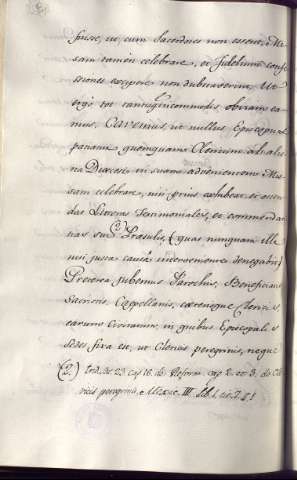 fuisse, ut cum Sacerdotes non essent, Mis-
sam tamen celebrare, et fidelium confe-
ssiones excipere non dubitaverint. Ut
igitur tot tantisque incommodis obviam ea-
mus, Cavemus, ut nullus Episcopus
patiatur quemquam Clericum ab alie-
na Diœcesi in suam advenientem Mis-
sam celebrare, nisi prius exhibeat et osten-
das Literas Testimoniales, et commendati-
tias sui Præsulis, (quas nunquam ille
nisi justa causa interveniente denegabit)
Præterea jubemus Parochis, Beneficiatis
Sacristis, Cappellanis, cæterisque Clericis,
earum Civitatum, in quibus Episcopalis
Sedes fixa est, ut Clericis peregrinis, neque
(2) Trid. Ses 23 cap 16 de Reform. cap 2. et 3. de Cle-
ricis peregrinis. Mexic. III. Lib. 1.